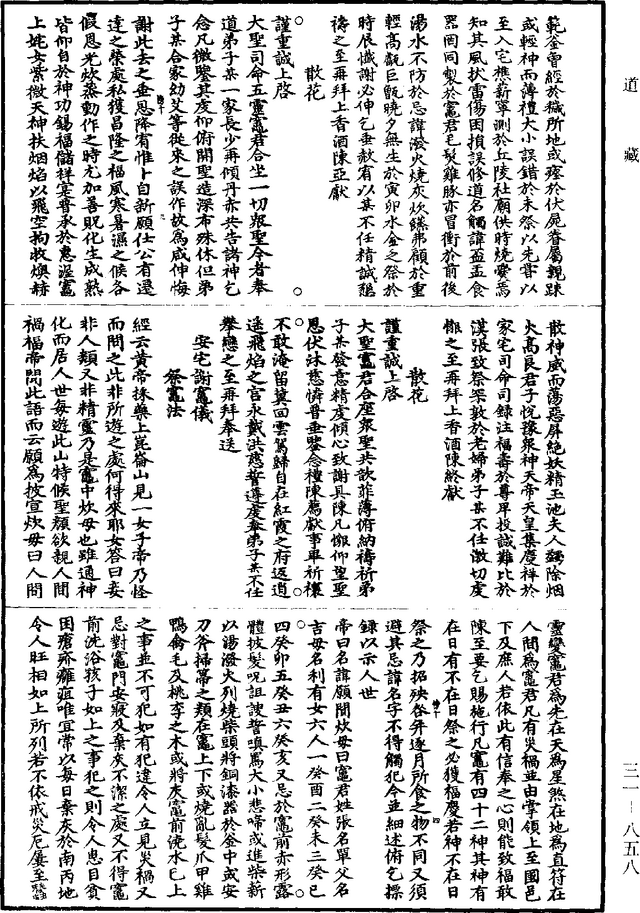 道藏
三一—八五八
範金曾經於穢所地或瘞於伏屍眷屬親踈
或輕神而薄禮大小誤錯於未祭以先嘗以
至入宅樵薪寧測於丘陵社廟供時燒爨焉
知其風狀雷傷困損誤修道名觸諱盃盂食
器罔同製於竈君毛髮雞豚亦冒衝於前後
湯水不防於忌諱潑火燒灰炊鐥弗顧於重
輕高觀巨甑曉夕無生於寅卯水金之祭於
時展懺謝必伸乞垂赦宥以某不任精誠懇
禱之至再拜上香酒陳亞獻
散花
謹重誠上啓
大聖司命五靈竈君合坐一切衆聖今者奉
道弟子某一家長少再傾丹赤共告諸神乞
念凡微鑒其虔仰俯開聖造深布殊休但弟
子某合家幼艾等從來之誤作故爲咸伸悔
謝此去之垂恩降宥惟卜自新願仕公有還
達之榮處私獲昌隆之福風寒暑濕之候各
假恩光炊蒸動作之時尤加善貺化生成熟
皆仰自於神功錫福儲祥寔賚承於惠渥竈
上姹女紫微天神扶烟焰以飛空拘救燠赫
散神威而蕩惡屏絶妖精玉池夫人蠲除烟
火高良君子悅豫衆神天帝天皇集慶祥於
家宅司命司録注福壽於尊卑投誠難比於
漢張致祭深敦於老婦弟子某不任激切虔
䖍之至再拜上香酒陳終獻
散花
謹重誠上啓
大聖竈君合座衆聖共歆菲薄俯納禱祈弟
子某發意精虔傾心致謝具陳凡懇仰聖聖
恩伏沐慈憐普垂鑒念禮陳薦獻事畢祈禳
不敢淹留冀回雲駕歸自在紅霞之府返道
遥飛焰之宫永戴洪慈誓遵虔奉弟子某不任
攀戀之至再拜奉送
安宅謝竈儀
祭竈法
經云黄帝採藥上崑崙山見一女子帝乃怪
而問之此非所遊之處何得來耶女答曰妾
非人類又非精靈乃是竈中炊母也雖通神
化而居人世每遊此山特候聖顔欲親人間
禍福帝聞此語而云願爲披宣炊母曰人間
靈變竈君爲先在天爲星煞在地爲直符在
人間爲竈君凡有災禍並由掌領上至國邑
下及庶人若依此有信奉之心則能致福敢
陳至要乞賜施行凡竈有四十二神其神有
在日有不在日祭之必獲福慶若神不在日
祭之乃招殃咎年逐月所食之物不同又須
避其忌諱名字不得觸犯今並細述俯乞操
録以示人世
帝曰名諱願聞炊母曰竈君姓張名單父名
吉母名利有女六人一癸酉二癸未三癸巳
四癸卯五癸丑六癸亥又忌於竈前赤形露
體披髮呪詛謾誓嗔罵大小悲啼或進柴薪
以湯潑火列燒柴頭將銅漆器於釜中或安
刀斧掃箒之類在竈上下或燒亂髮爪甲雞
鴨禽毛及桃李之木或將灰竈前澆水已上
之事並不可犯如有犯違令人立見災禍又
忌對竈門安厠及棄灰不潔之處又不得竈
前洗浴孩子如上之事犯之則令人患目貧
困瘡疥癱疽唯宜常以每日棄灰於南丙地
令人旺相如上所列若不依戒災厄屢至